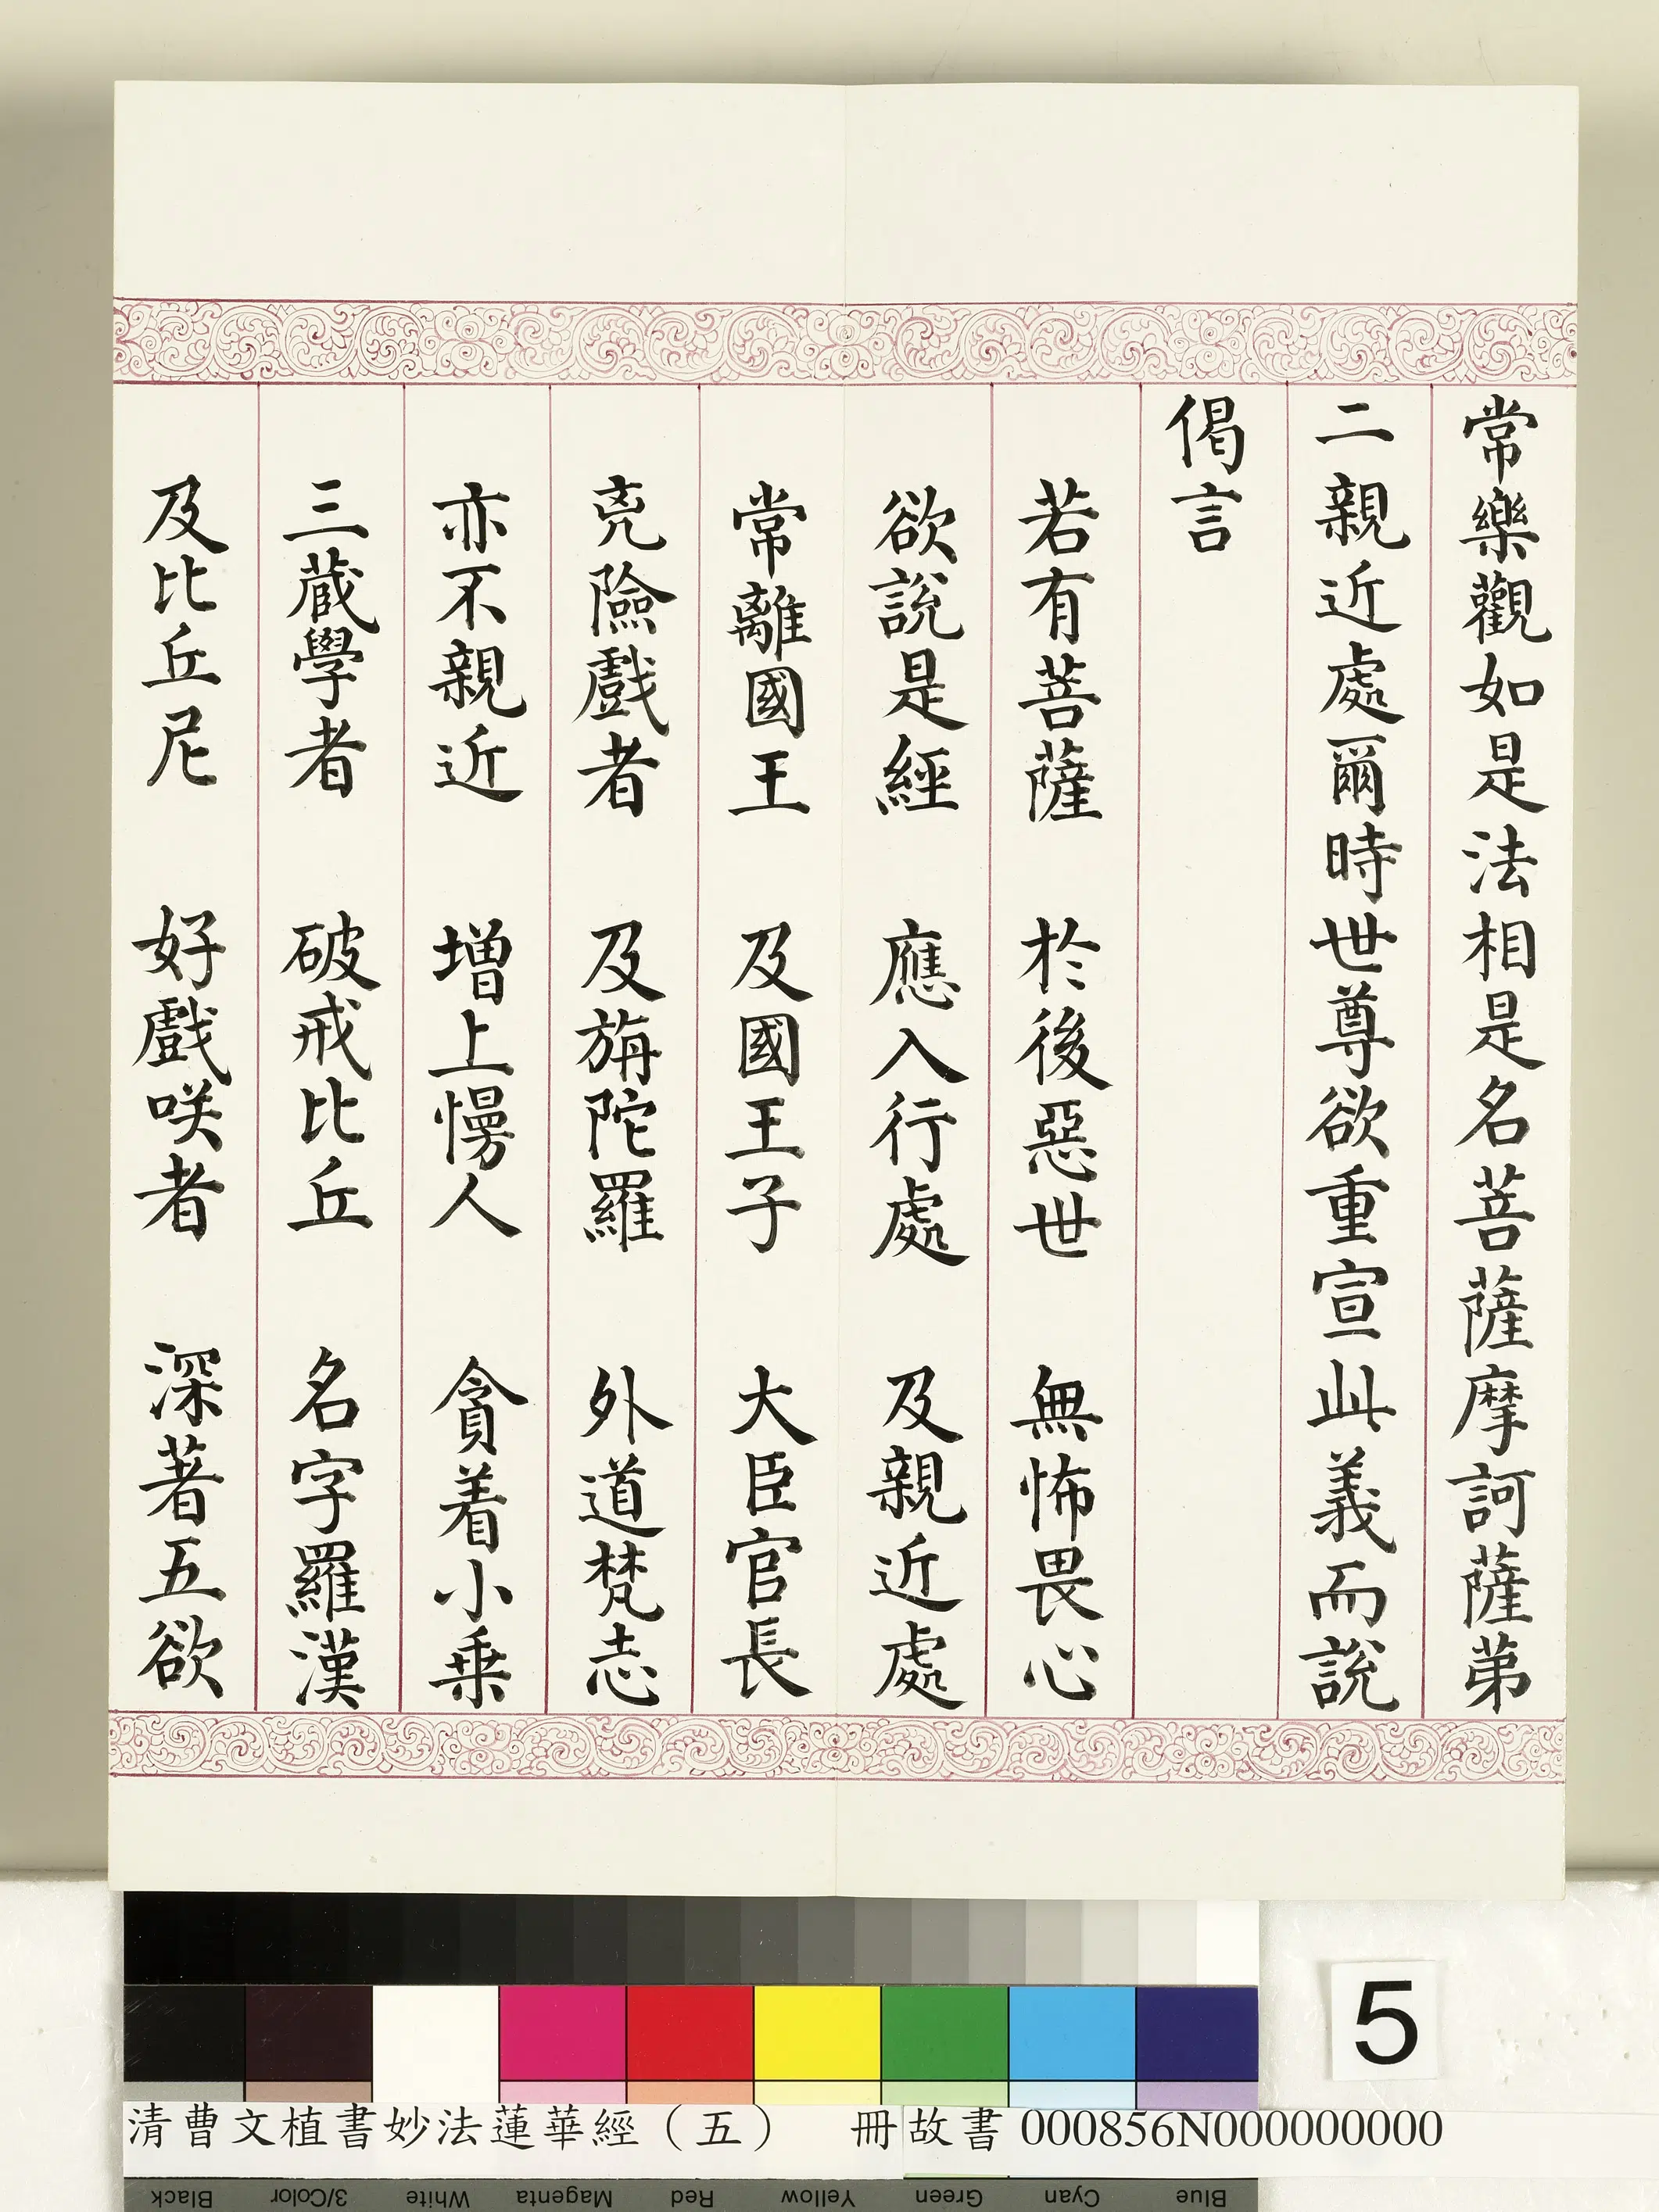 常樂觀如是法相是名菩薩摩訶薩第
二親近處爾時世尊欲重宣此義而說
偈言
若有菩薩　於後惡世　無怖畏心
欲說是經　應入行處　及親近處
常離國王　及國王子　大臣官長
兇險戲者　及旃陀羅　外道梵志
亦不親近　增上慢人　貪着小乗
三蔵學者　破戒比丘　名字羅漢
及比丘尼　好戲咲者　深著五欲
5
清曹文植書妙法蓮華經（五）　冊故書 000856N000000000
Black 3/Color White Magenta Red Yellow Green Cyan Blue